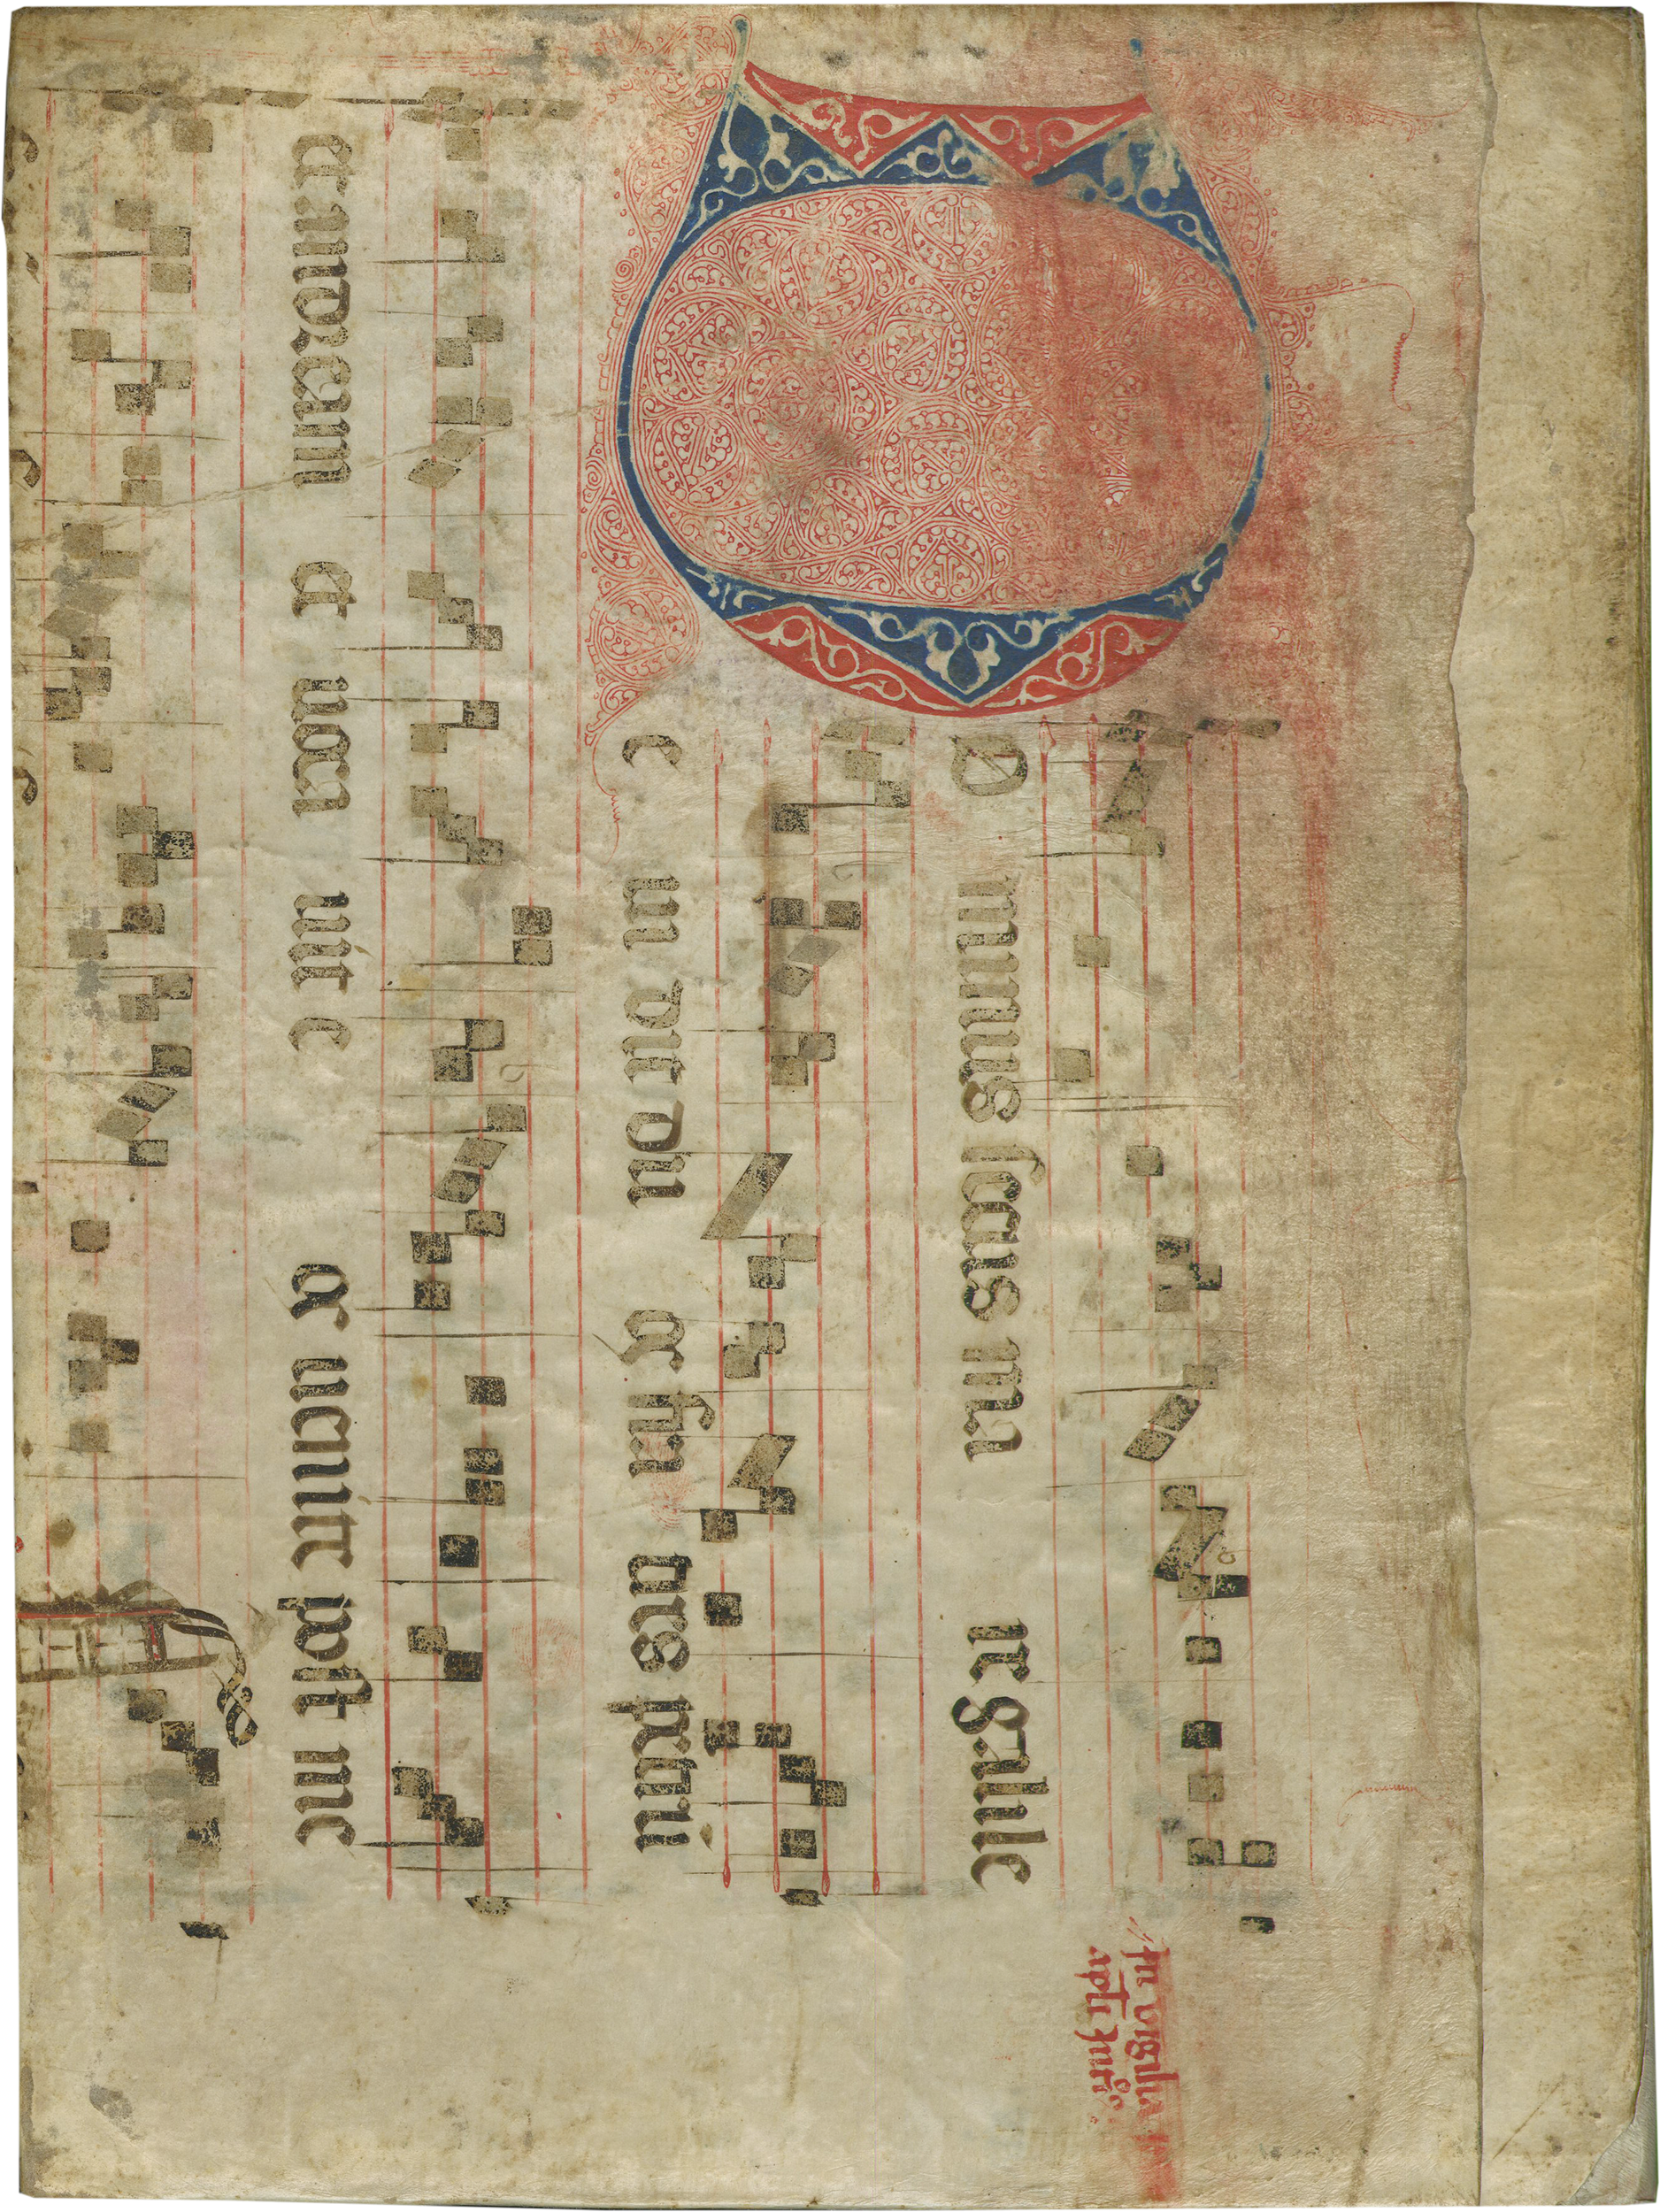 In vigilia
apli Andr
DO minus secus ma re galile
e ui dit du os fra tres petrum
et andream et uoca uit e os uenite post me